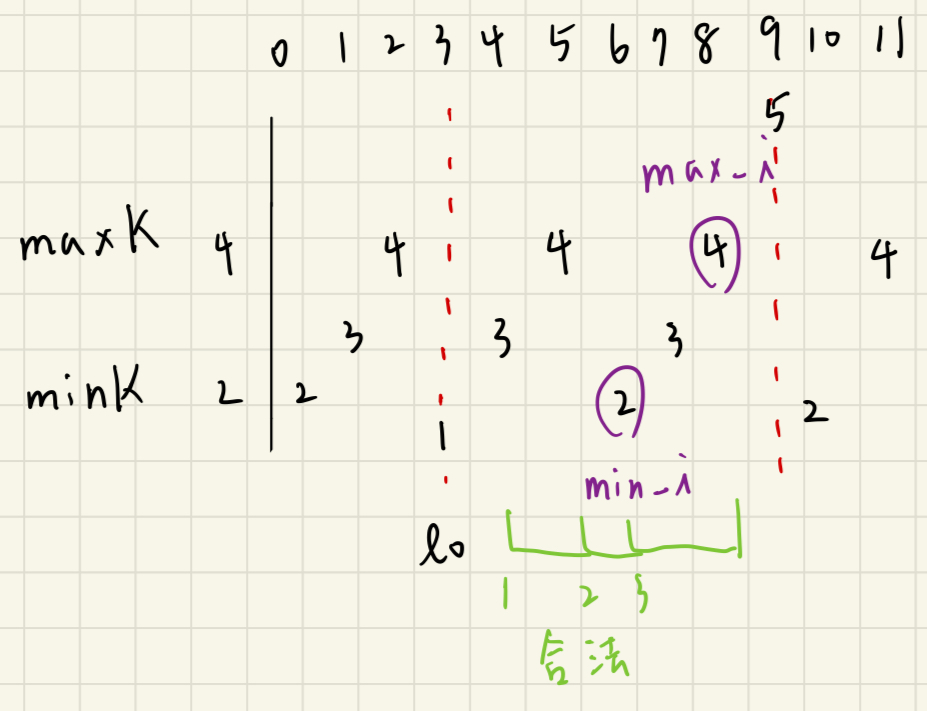 0 1 2 3 4 5 6 7 8 9 10 11
5
max_i
maxK 4 4 4 4 4
3 3 3
minK 2 2 2 2
1
min_i
lo
1 2 3
合法